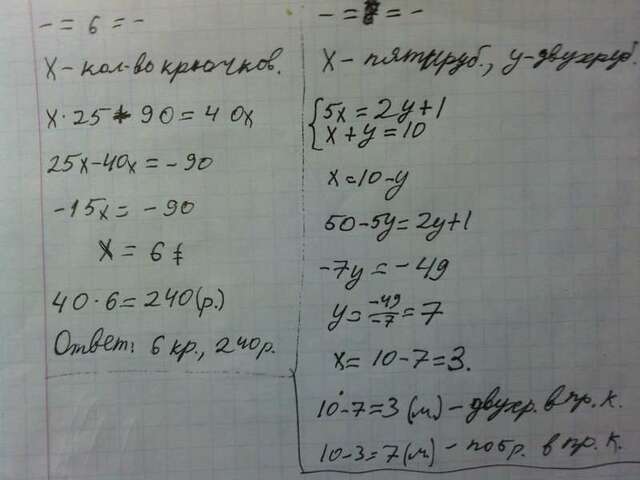 - = 6 = -
X - кол-во крючков.
X·25 + 90 = 40x
25x-40x = -90
-15x = -90
X = 6
40·6=240(р.)
Ответ: 6 кр., 240р.
- = = -
X - пятируб., у-двухруб.
{5x = 2y+1
x+y=10
x=10-y
50-5y=2y+1
-7y = -49
y = -49/-7 = 7
x = 10-7=3.
10-7=3 (м.) - двухр. в пр. к.
10-3=7(м.) - по 5р. в пр. к.